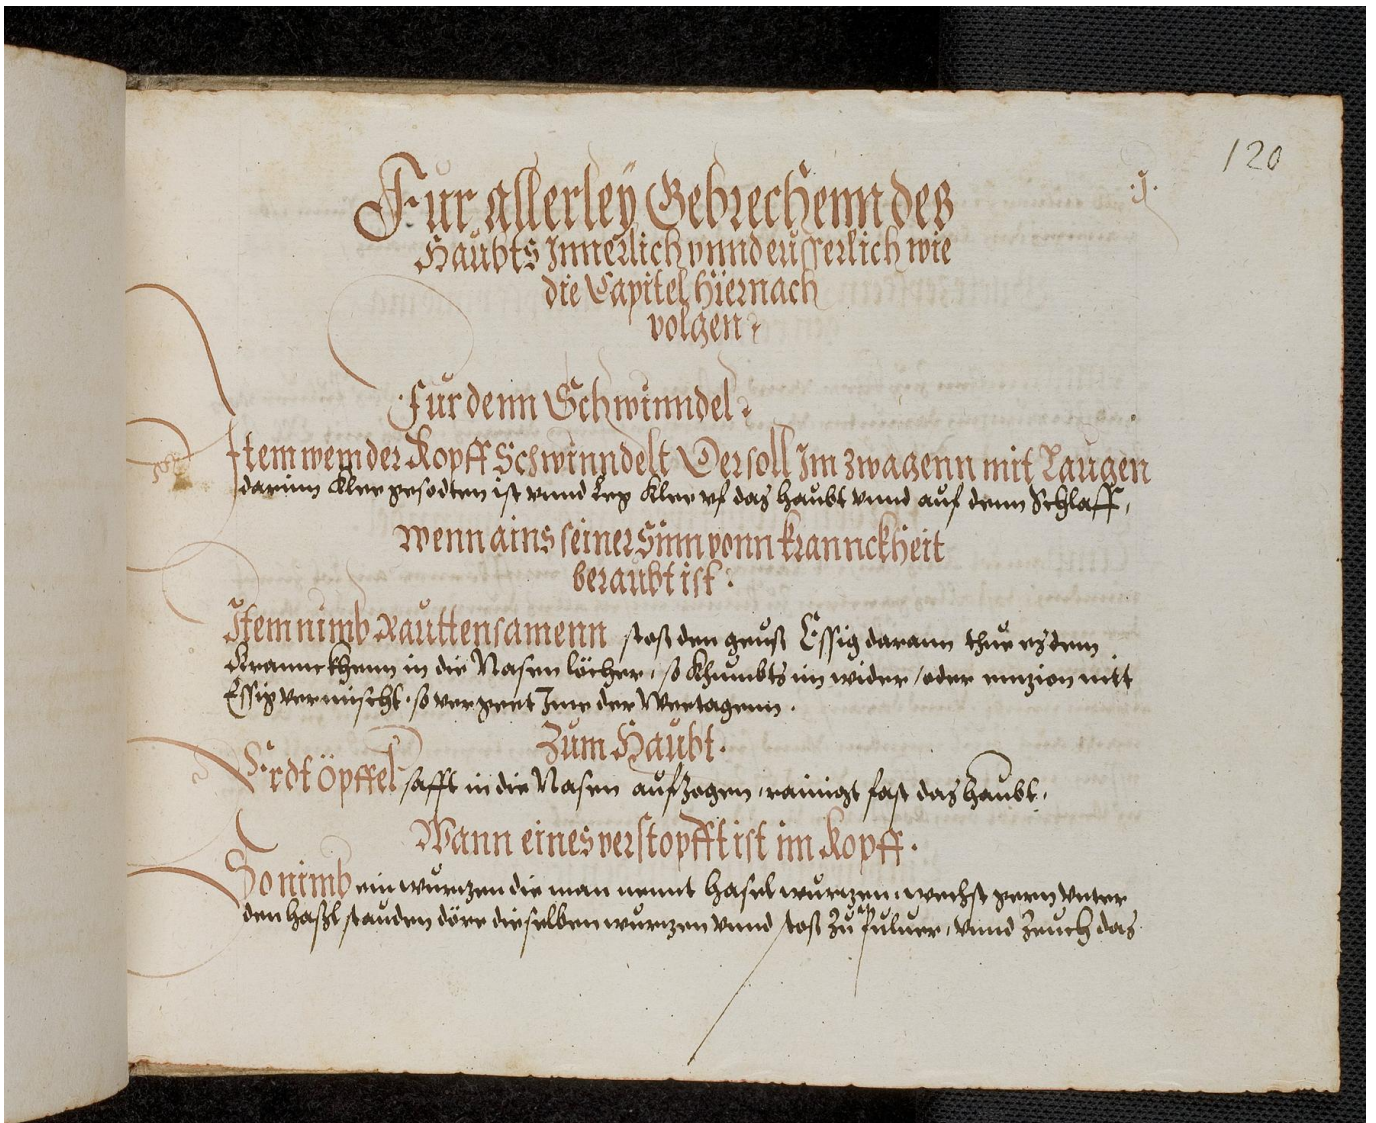 120
.j.
Fur allerley Gebrechenn des
Haubts Innerlich vnnd eusserlich wie
die Capitel hiernach
volgen
Fur denn Schwinndel
Item wem der Kopff Schwinndelt Der soll Im zwagenn mit Laugen
darinn klee gesodten ist vnnd leg klee vf das haubt vnnd auf denn Schlaff,
Wenn ains seiner Sinn vonn krannckheit
beraubt ist.
Item nimb Rauttensamenn stoß den geuß Essig darann thue es dem
Krannckhenn in die Nasen löcher, so khumbts im wider / oder enzion mit
Essig vermischt. so vergeet Ime der Weetagenn.
Zum Haubt.
Erdt öpffel safft in die Nasen auf zogen, rainigt fast das haubt.
Wann eines verstopfft ist im Kopff.
So nimb ein wurtzen die man nennt hasel wurtzen, wechst gern vnter
den haßl stauden döre dieselben wurtzen vnnd stoß zu Puluer, vnnd zeuch das